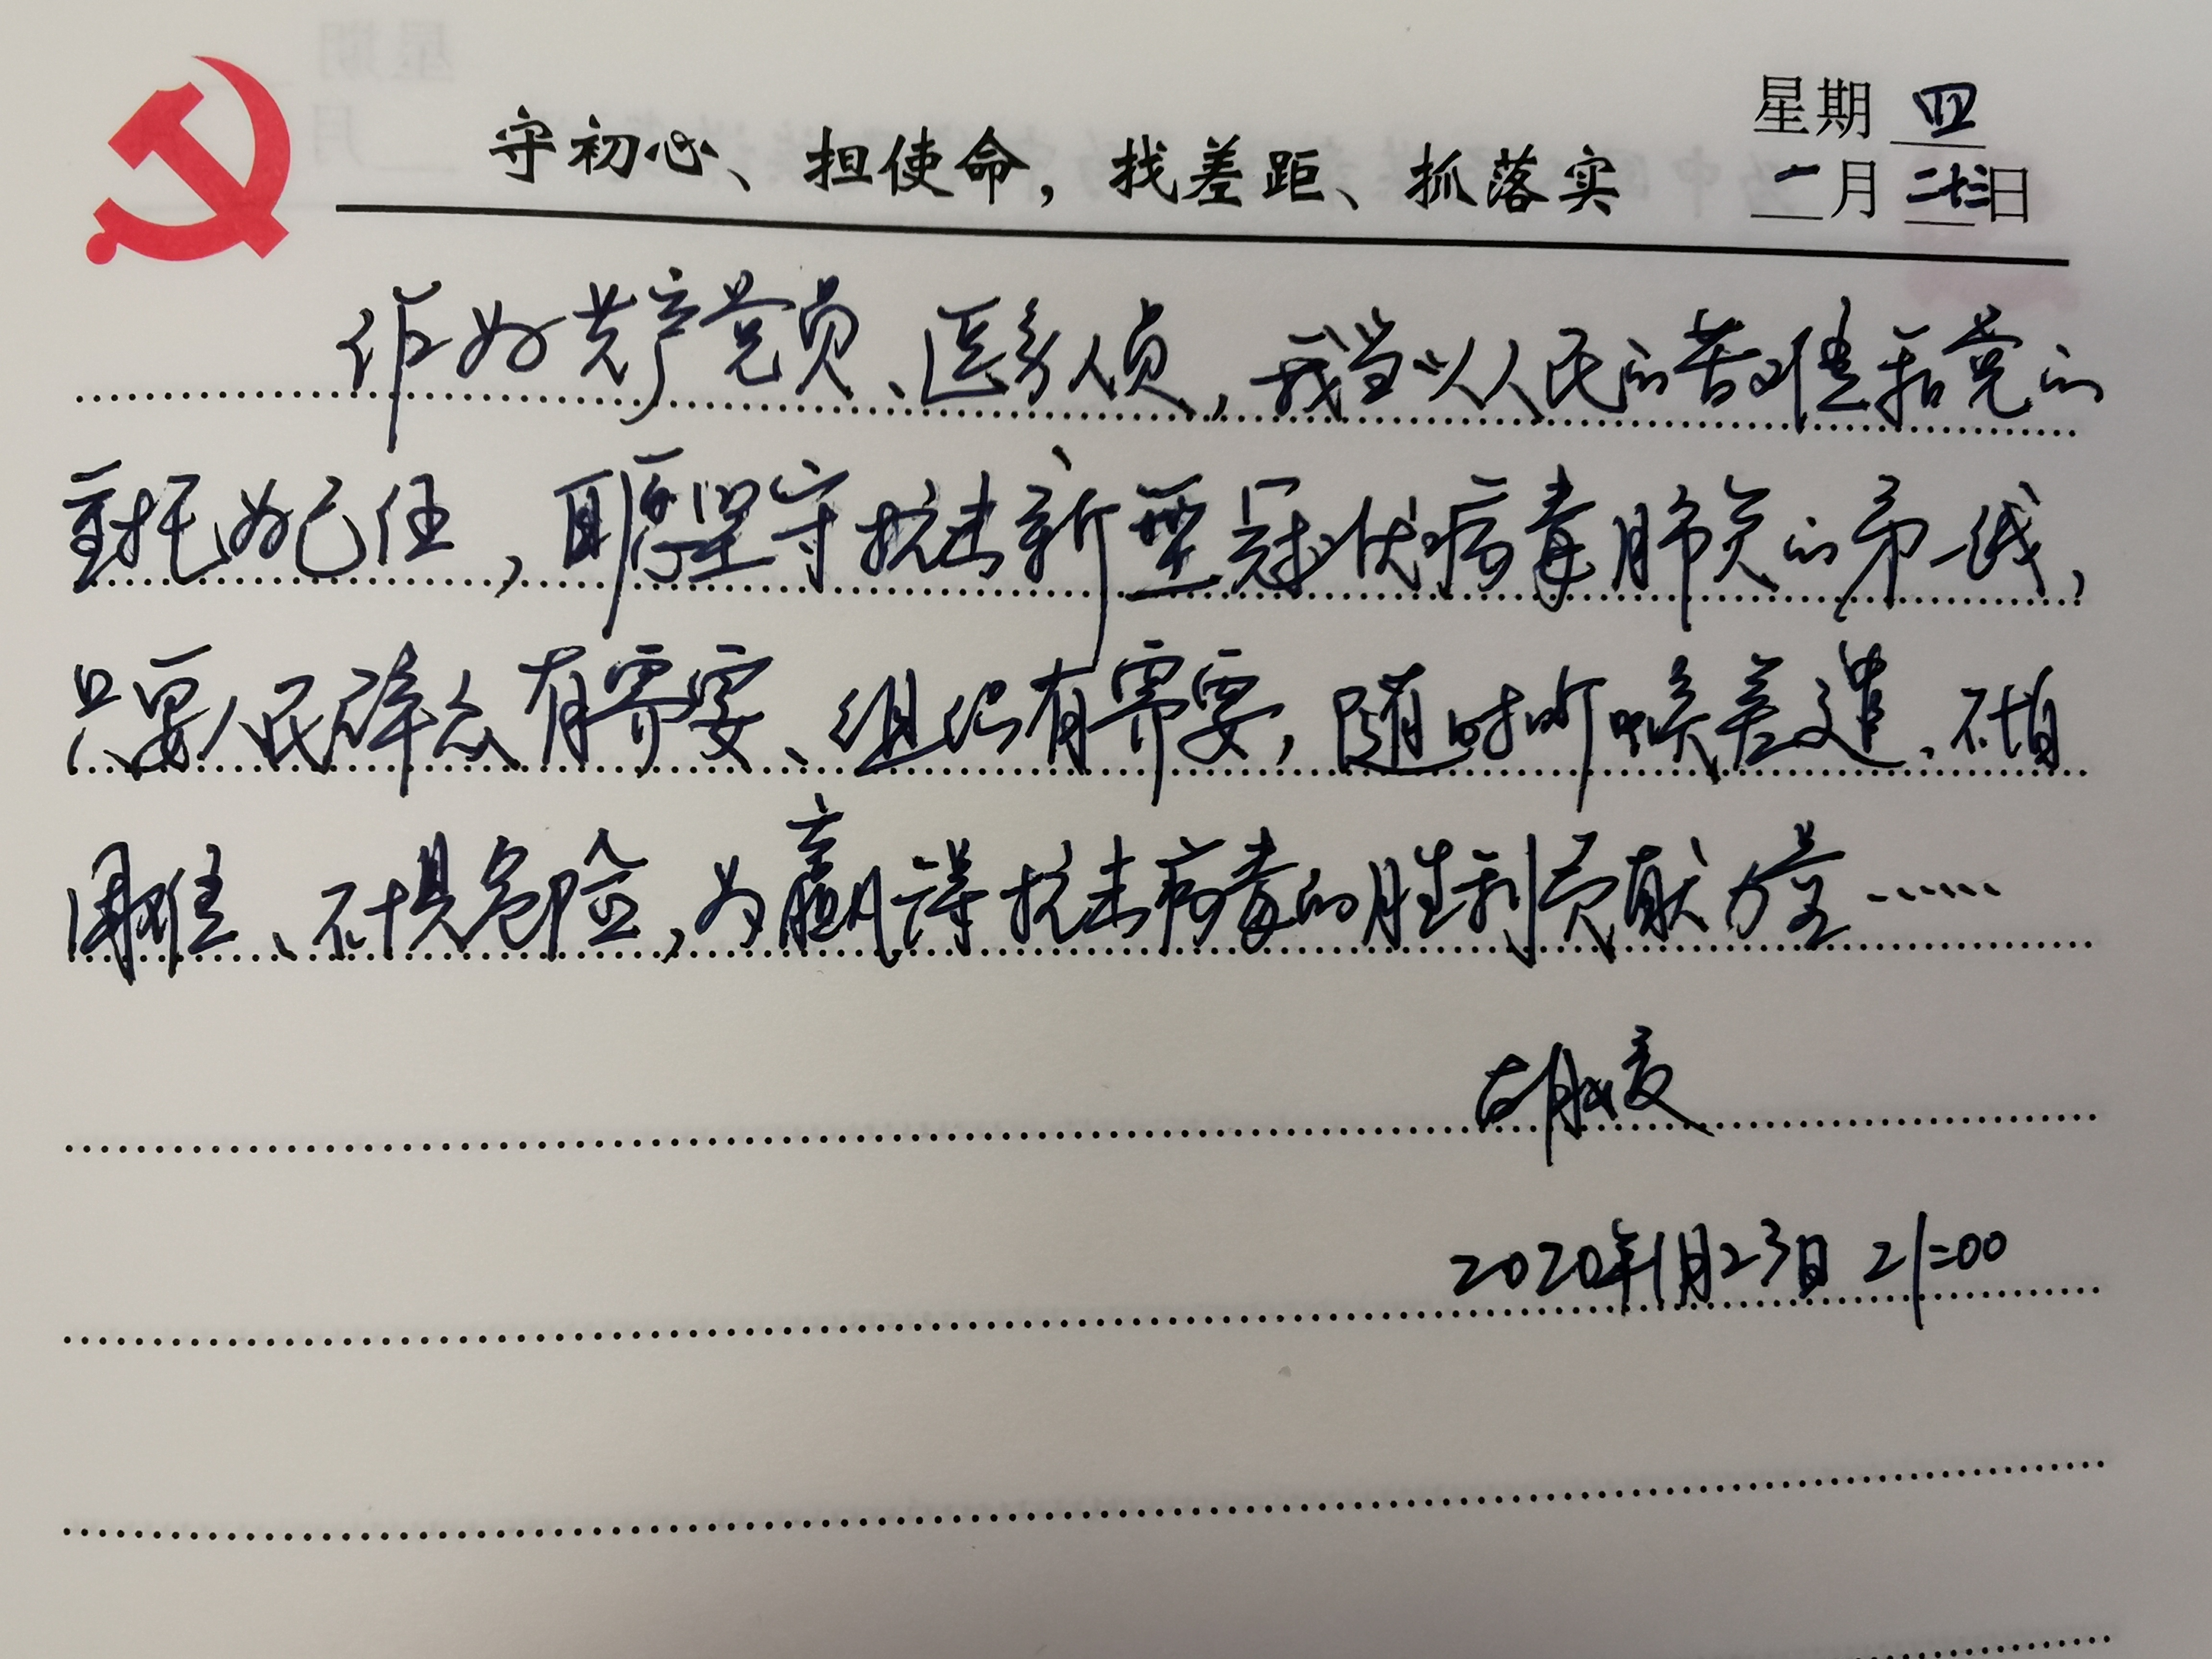 星期 四
守初心、担使命，找差距、抓落实
一月 二十三日
作为共产党员、医务人员，我当以人民的苦难和党的
重托为己任，履坚守抗击新型冠状病毒肺炎的第一线，
只要人民群众有需要、组织有需要，随时听候差遣、不怕
困难、不惧危险，为赢得抗击病毒的胜利贡献力量……
2020年1月23日 21:00